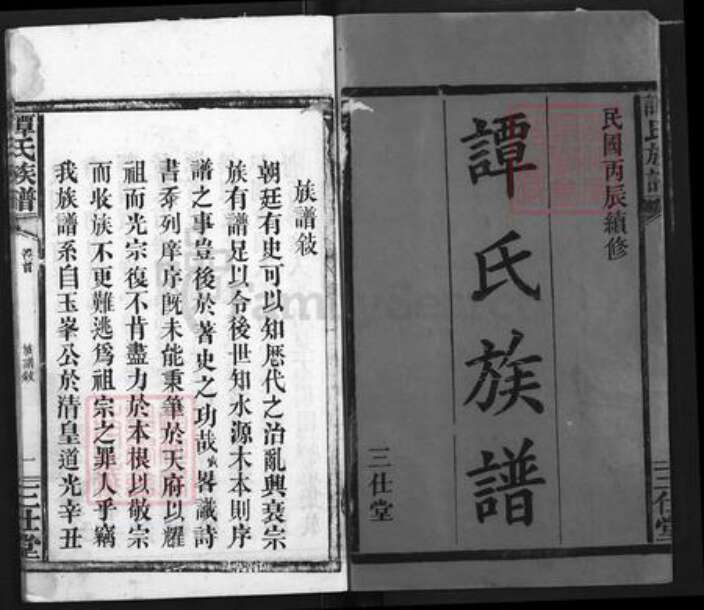 民國丙辰續修
譚氏族譜
三仕堂
譚氏族譜
三仕堂
族譜敍
朝廷有史可以知厯代之治亂興衰宗
族有譜足以令後世知水源木本則序
譜之事豈後於著史之功哉 畧讖詩
書忝列庠序旣未能秉筆於天府以耀
祖而光宗復不肯盡力於本根以敬宗
而收族不更難逃爲祖宗之罪人乎竊
我族譜系自玉峯公於清皇道光辛丑
譚氏族譜
卷首
族譜敍
一
三仕堂